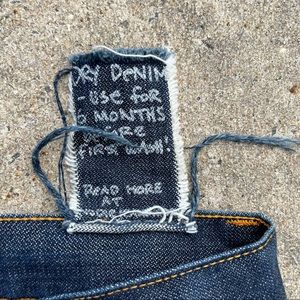 DRY DENIM
- USE FOR
6 MONTHS
BEFORE
FIRST WASH!
READ MORE
AT